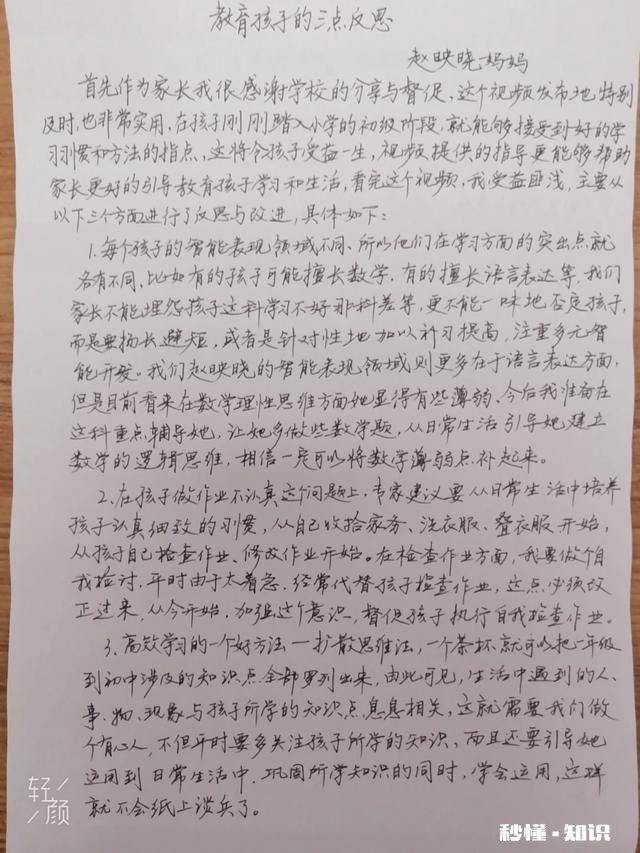 教育孩子的三点反思
赵映晓妈妈
首先作为家长我很感谢学校的分享与督促，这个视频发布地特别
及时，也非常实用，在孩子刚刚踏入小学的初级阶段，就能够接受到好的学
习习惯和方法的指点，这将令孩子受益一生，视频提供的指导更能够帮助
家长更好的引导教育孩子学习和生活，看完这个视频，我受益匪浅，主要从
以下三个方面进行了反思与改进，具体如下：
1.每个孩子的智能表现领域不同、所以他们在学习方面的突出点就
各有不同、比如有的孩子可能擅长数学，有的擅长语言表达等，我们
家长不能埋怨孩子这科学习不好那科差等，更不能一味地否定孩子，
而是要扬长避短，或者是针对性地加以补习提高，注重多元智
能开发。我们赵映晓的智能表现领域则更多在于语言表达方面，
但是目前看来在数学理性思维方面她显得有些薄弱、今后我准备在
这科重点辅导她，让她多做些数学题，从日常生活引导她建立
数学的逻辑思维，相信一定可以将数学薄弱点补起来。
2.在孩子做作业不认真这个问题上，专家建议要从日常生活中培养
孩子认真细致的习惯，从自己收拾家务、洗衣服、叠衣服开始，
从孩子自己检查作业、修改作业开始。在检查作业方面，我要做个自
我检讨.平时由于太着急，经常代替孩子检查作业，这点必须改
正过来，从今开始，加强这个意识，督促孩子执行自我检查作业。
3.高效学习的一个好方法—扩散思维法，一个茶杯就可以把一年级
到初中涉及的知识点全部罗列出来，由此可见，生活中遇到的人、
事.物.现象与孩子所学的知识点息息相关，这就需要我们做
个有心人，不但平时要多关注孩子所学的知识，而且还要引导她
运用到日常生活中.巩固所学知识的同时，学会运用，这样
就不会纸上谈兵了。
轻颜
秒懂·知识